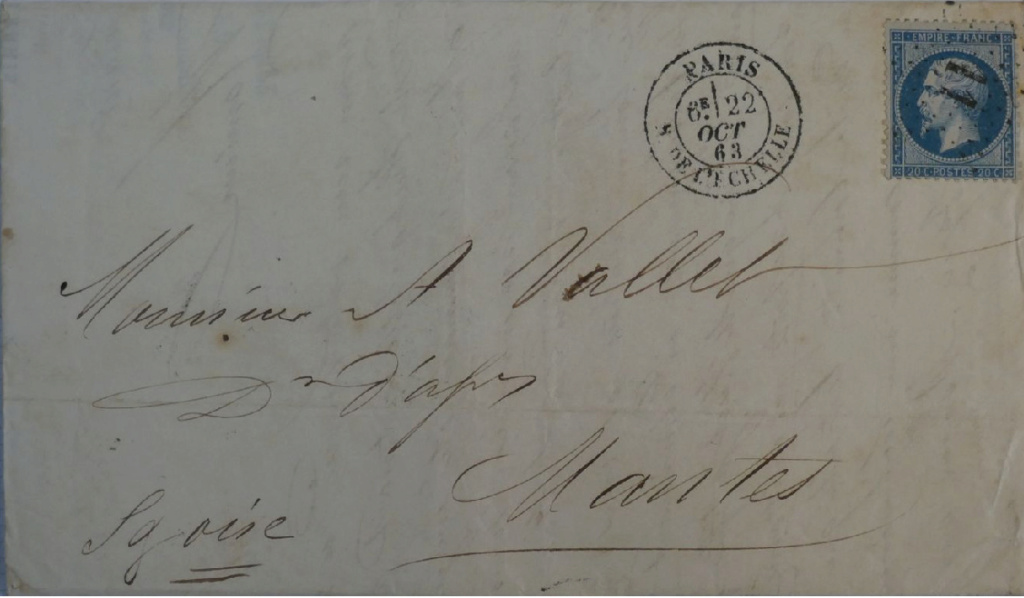 EMPIRE FRANC
20 C POSTES 20 C
PARIS
6E 22
OCT
63
R. DE L'ECHELLE
Monsieur A Vallet
Dr d'affes
Mantes
S & oise